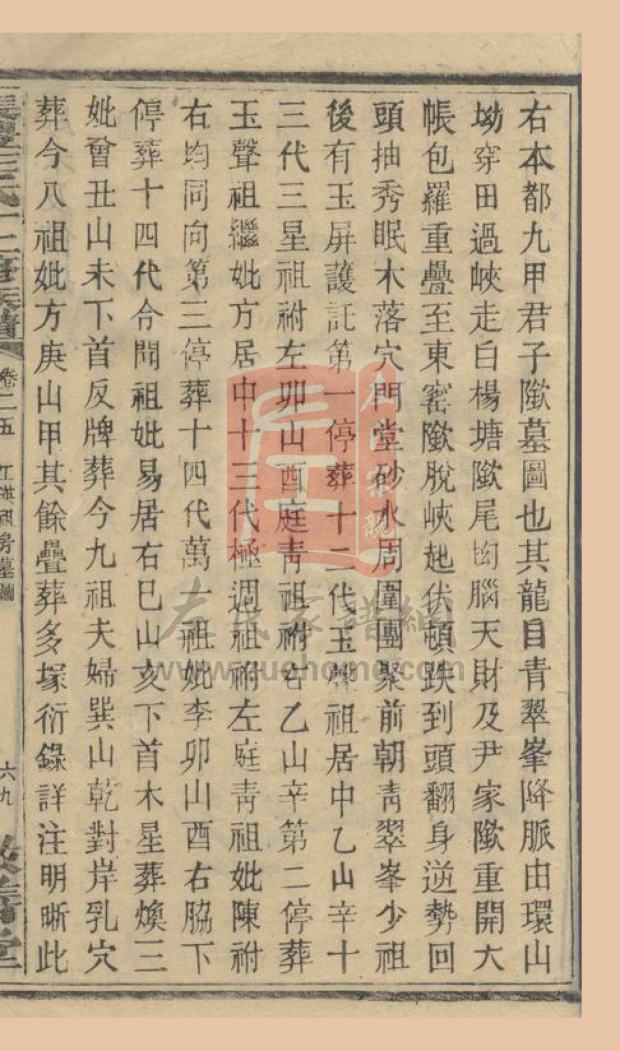 右本都九甲君子隞墓圖也其龍自青翠峯降脈由環山
坳穿田過峽走白楊塘隞尾坳腦天財及尹家隞重開大
帳包羅重疊至東窰隞脫峽起伏頓跌到頭翻身逆勢回
頭抽秀眠木落穴門堂砂水周圍團聚前朝靑翠峯少祖
後有玉屏護託第一停葬十二代玉聲祖居中乙山辛十
三代三星祖祔左卯山酉庭靑祖祔右乙山辛第二停葬
玉聲祖繼妣方居中十三代極週祖祔左庭靑祖妣陳祔
右均同向第三停葬十四代萬一祖妣李卯山酉右脇下
停葬十四代令聞祖妣易居右巳山亥下首木星葬煥三
妣曾丑山未下首反牌葬今九祖夫婦巽山乾對岸乳穴
葬今八祖妣方庚山甲其餘疊葬多塚衍錄詳注明晰此
卷二五
六九
www.zuohome.com